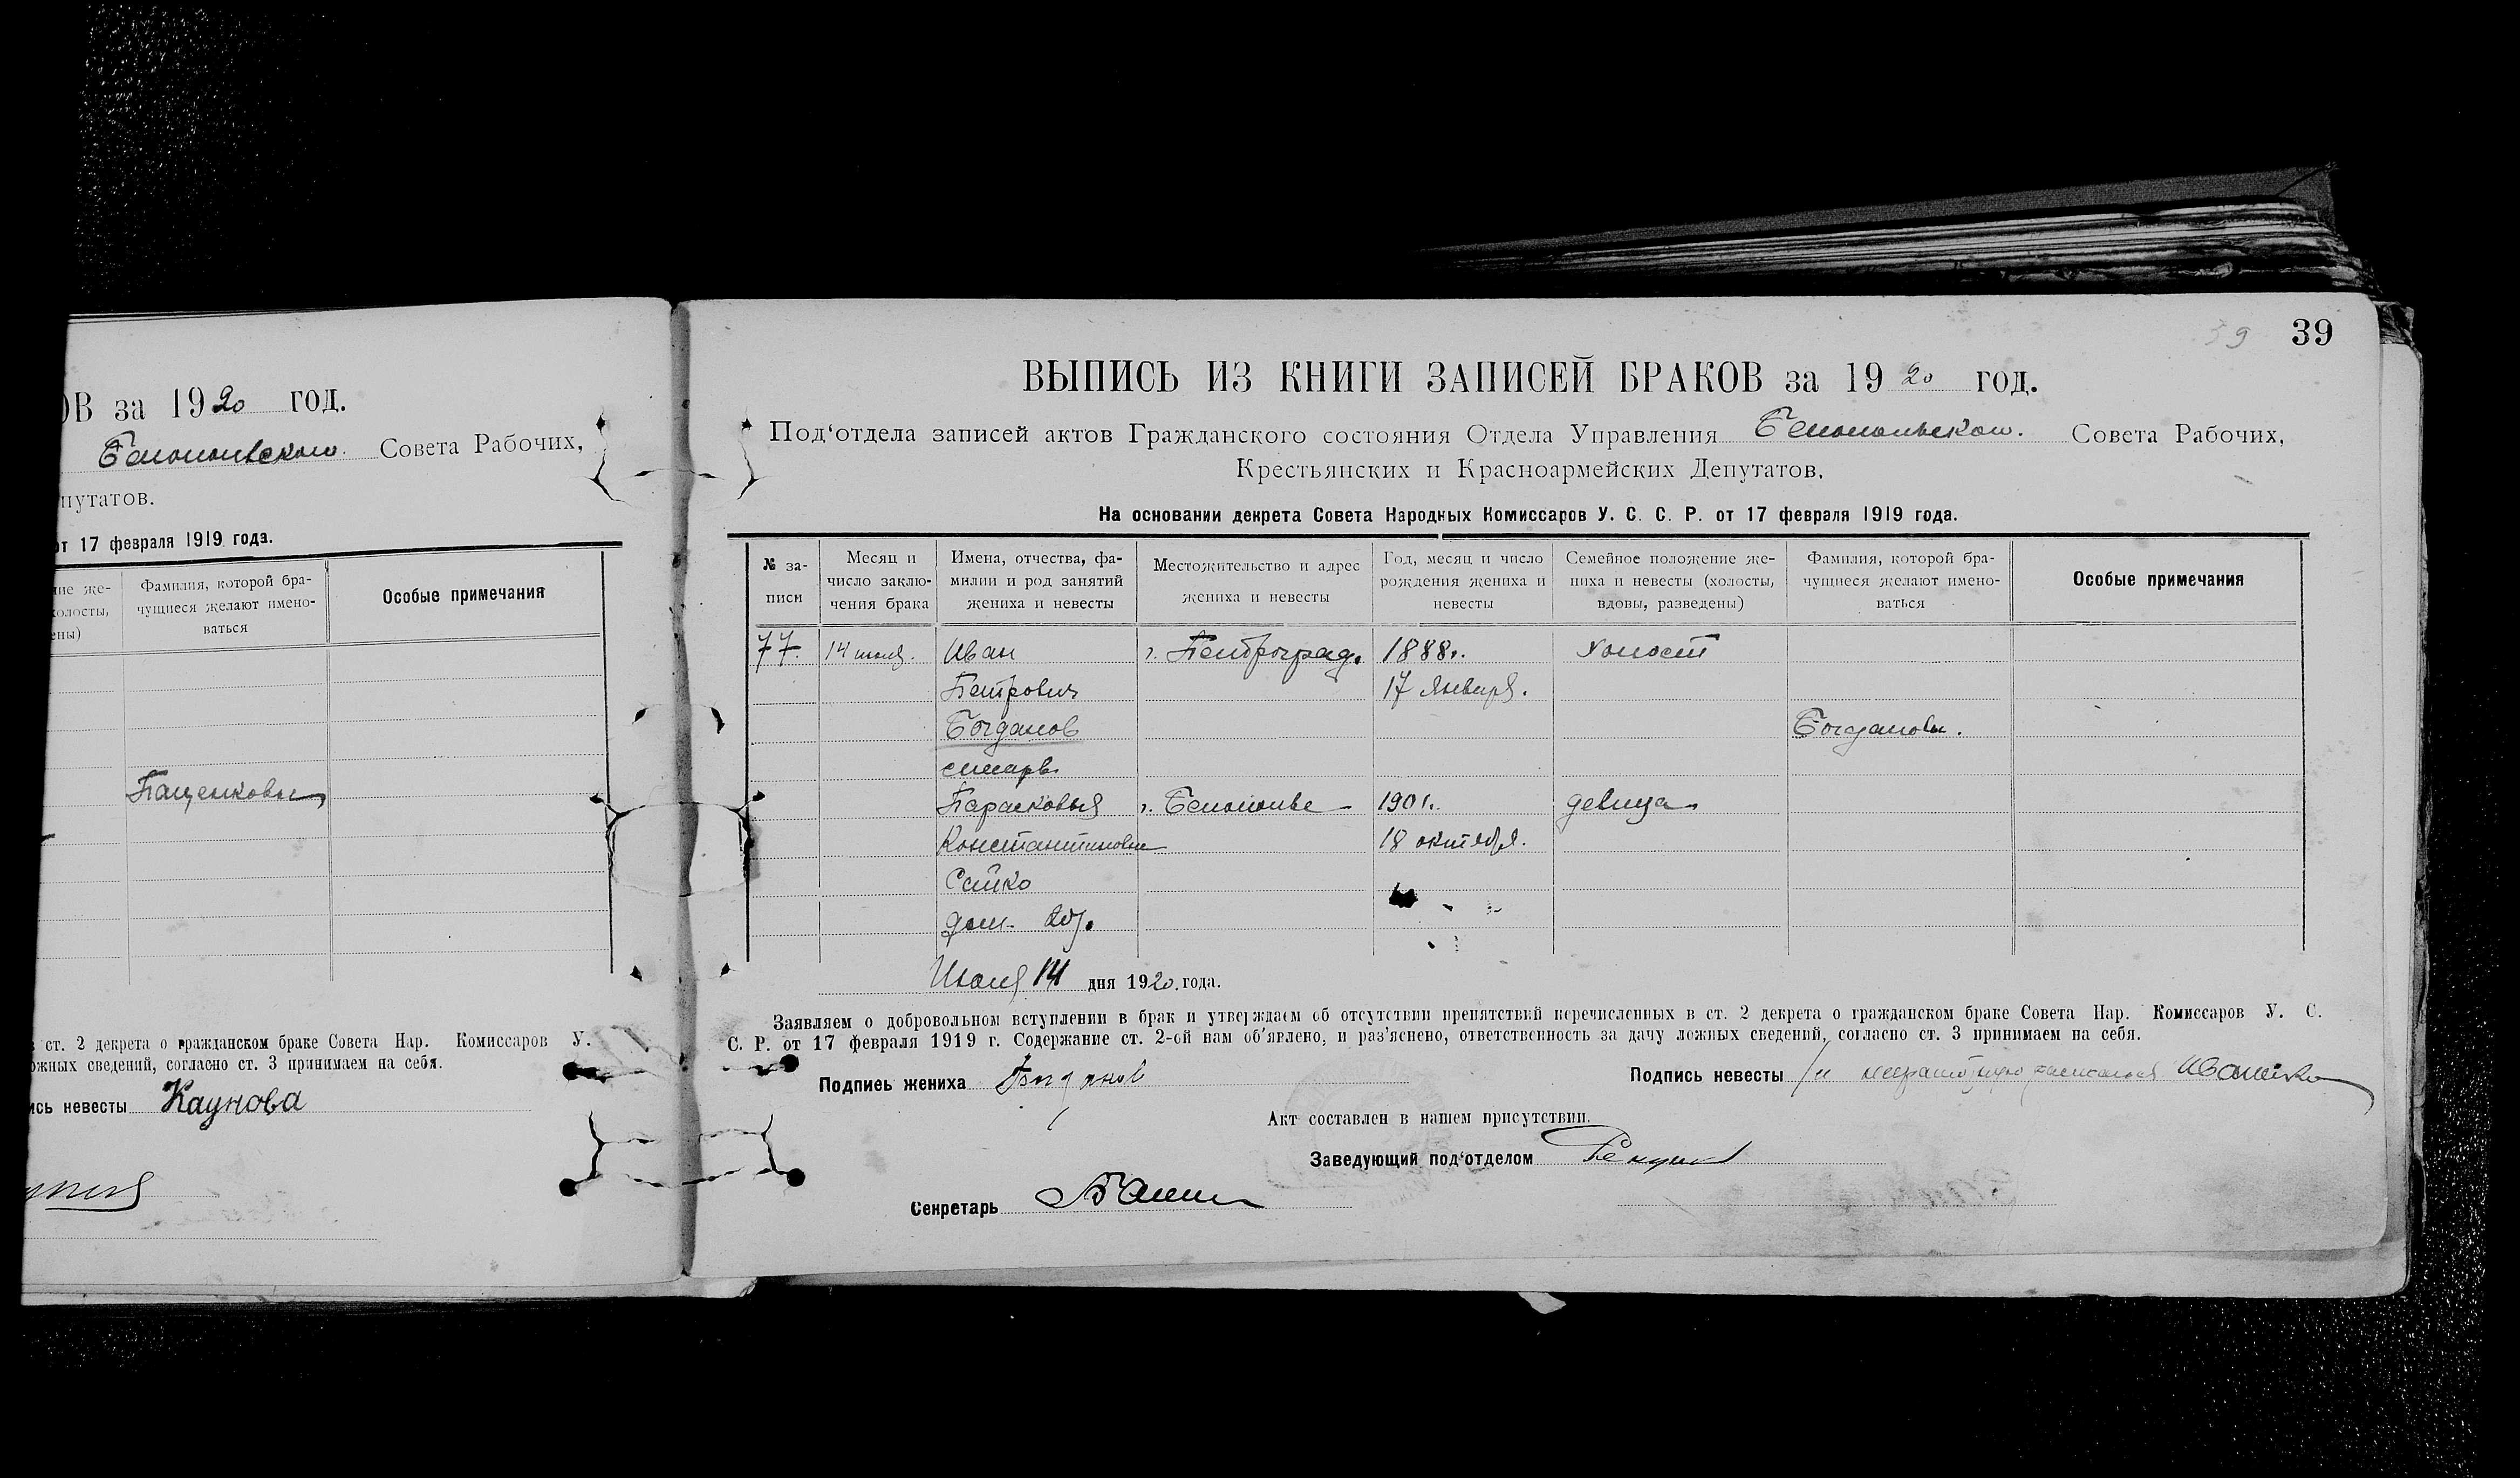 ОВ за 1920 год.
Белопольском. Совета Рабочих,
путатов.
от 17 февраля 1919 года.
ние же-
холосты,
ены)
Фамилия, которой бра-
чущиеся желают имено-
ваться
Особые примечания
Пащенковы
ст. 2 декрета о гражданском браке Совета Нар. Комиссаров У.
ожных сведений, согласно ст. 3 принимаем на себя.
ись невесты Каунова
39
39
ВЫПИСЬ ИЗ КНИГИ ЗАПИСЕЙ БРАКОВ за 1920 год.
Под‘отдела записей актов Гражданского состояния Отдела Управления Белопольском. Совета Рабочих,
Крестьянских и Красноармейских Депутатов.
На основании декрета Совета Народных Комиссаров У. С. С. Р. от 17 февраля 1919 года.
№ за-
писи
Месяц и
число заклю-
чения брака
Имена, отчества, фа-
милии и род занятий
жениха и невесты
Местожительство и адрес
жениха и невесты
Год, месяц и число
рождения жениха и
невесты
Семейное положение же-
ниха и невесты (холосты,
вдовы, разведены)
Фамилия, которой бра-
чущиеся желают имено-
ваться
Особые примечания
77. 14 июля. Иван г. Петроград. 1888г. холост
Петрович 17 Января.
Богданов Богдановы.
слесарь
Парасковья г. Белополье 190г. девица
Константиновна 18 октября.
Сайко
дом.
Июля 14 дня 1920. года.
Заявляем о добровольном вступлении в брак и утверждаем об отсутствии препятствий перечисленных в ст. 2 декрета о гражданском браке Совета Нар. Комиссаров У. С.
С. Р. от 17 февраля 1919 г. Содержание ст. 2-ой нам об‘явлено, и раз‘яснено, ответственность за дачу ложных сведений, согласно ст. 3 принимаем на себя.
Подпись жениха Богданов
Подпись невесты неграмотную расписался
Акт составлен в нашем присутствии.
Заведующий под‘отделом
Секретарь